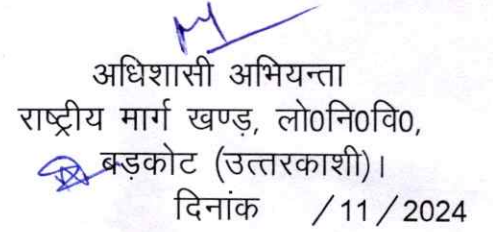 अधिशासी अभियन्ता
राष्ट्रीय मार्ग खण्ड, लो0नि0वि0,
बड़कोट (उत्तरकाशी)।
दिनांक /11/2024